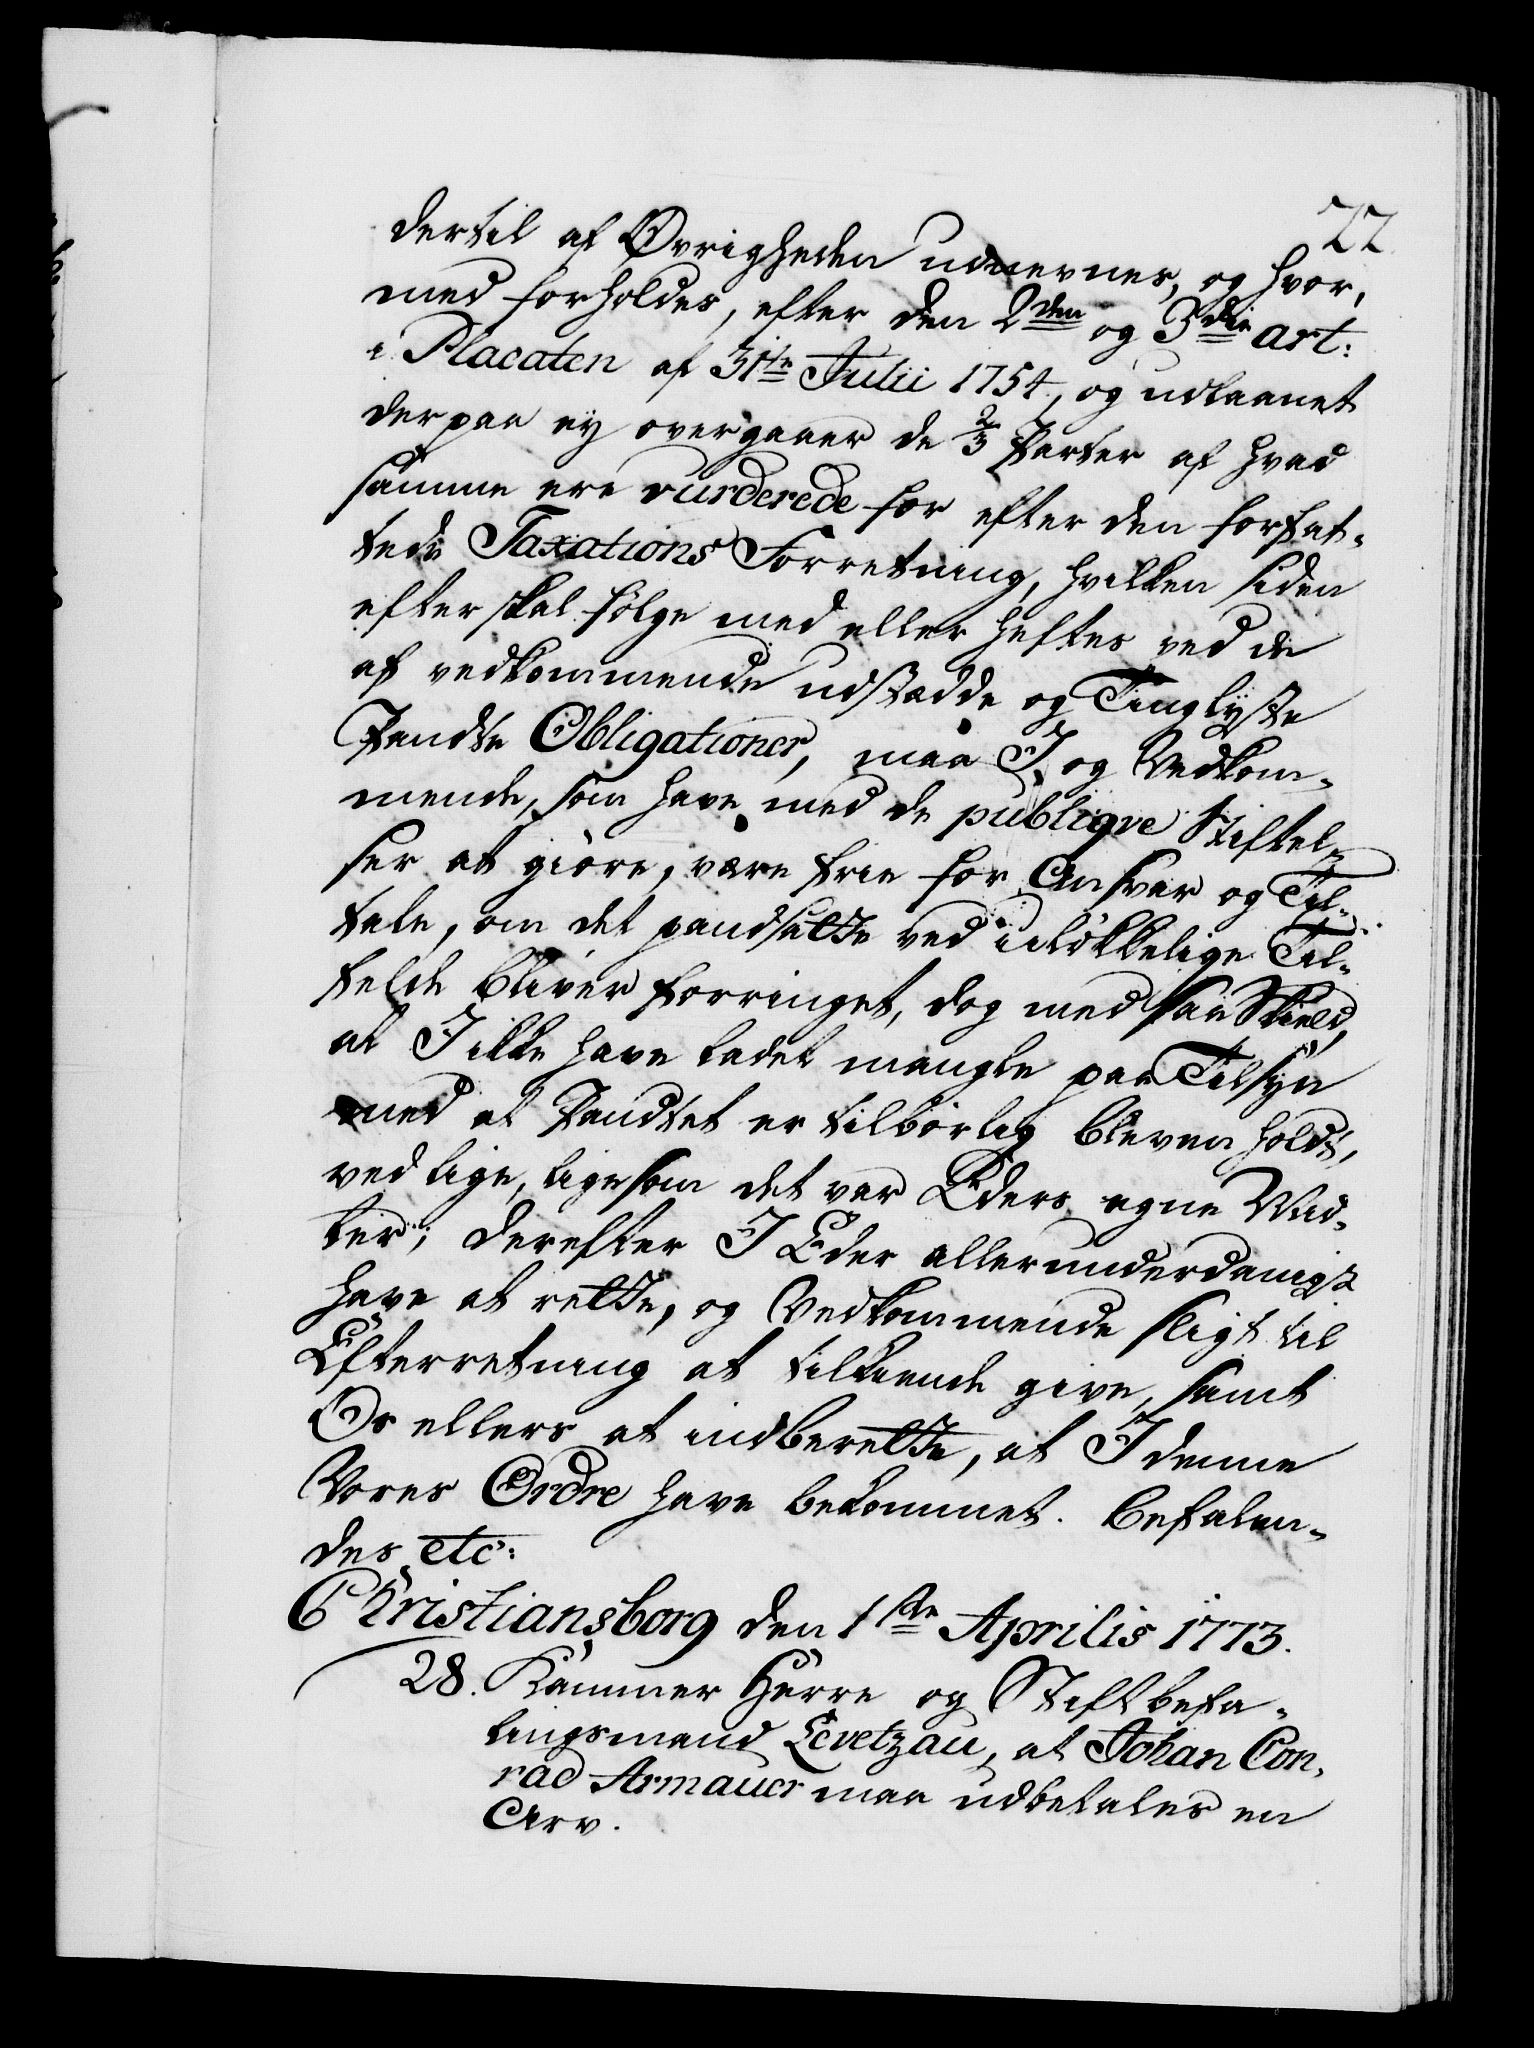 22
dertil af Øvrigheden udnevnes, og hvor,
med forholdes, efter den 2den og 3die art:
i Placaten af 31te Julii 1754, og udlaanet
derpaa ey overgaaer de 2/3 Parter af hvad
samme ere vurderede for efter den forfat-
tede Taxations Forretning, hvilken siden
efter skal følge med eller heftes ved de
af vedkommende udstædde og Tinglyste
Pandte Obligationer, maa I, og Vedkom-
mende, som have med de publiqve Stiftel-
ser at giöre, være frie for Ansvar og Til-
tale, om det pandsatte ved ulökkelige Til-
felde bliver forringet, dog med saa Skield,
at I ikke have ladet mangle paa Tilsyn
med at Pandtet er tilbörlig bleven holdt,
ved lige, ligesom det var Eders egne Mid-
ler; derefter I Eder allerunderdanigst
have at rette, og Vedkommende sligt til
Efterretning at tilkiende give, samt
Os ellers at indberette, at I denne
Vores Ordre have bekommet. Befalen-
des etc:
Christiansborg den 1ste Aprilis 1773.
28. Kammer Herre og Stiftbefa-
lingsmand Levetzau, at Johan Con,
rad Armauer maa udbetales en
Arv.